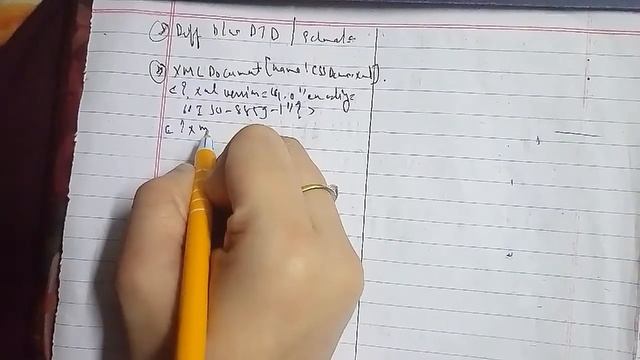 Diff b/w DTD | Schema
XML Document [name: CSSDemo.xml].
<? xml version="1.0" encoding=
"ISO-8859-1"?>
<?xm